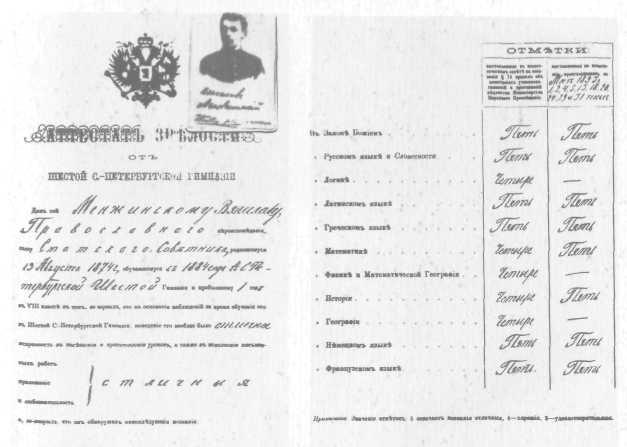 АТТЕСТАТЪ ЗРѢЛОСТИ
ОТЪ
ШЕСТОЙ С.-ПЕТЕРБУРГСКОЙ ГИМНАЗІИ
Данъ сей Менжинскому Вячеславу,
Православнаго вѣроисповѣданія,
сыну Статскаго Совѣтника, родившемуся
19 Августа 1874 г., обучавшемуся съ 1884 года въ С.-Пе-
тербургской Шестой Гимназіи и пробывшему 1 годъ
въ VIII классѣ въ томъ, во первыхъ, что на основаніи наблюденій за время обученія его
въ Шестой С.-Петербургской Гимназіи, поведеніе его вообще было отличное
исправность въ посѣщеніи и приготовленіи уроковъ, а также въ исполненіи письмен-
ныхъ работъ
прилежаніе
отличныя
и любознательность
и, во-вторыхъ, что онъ обнаружилъ нижеслѣдующія познанія:
ОТМѢТКИ:
Въ Законѣ Божіемъ Пять Пять
" Русскомъ языкѣ и Словесности Пять Пять
" Логикѣ Четыре —
" Латинскомъ языкѣ Пять Пять
" Греческомъ языкѣ Пять Пять
" Математикѣ Четыре Пять
" Физикѣ и Математической Географіи Четыре —
" Исторіи Четыре Пять
" Географіи Четыре —
" Нѣмецкомъ языкѣ Пять Пять
" Французскомъ языкѣ Пять Пять
Примѣчаніе. Значеніе отмѣтокъ: 5 означаетъ познанія отличныя, 4—хорошія, 3—удовлетворительныя.